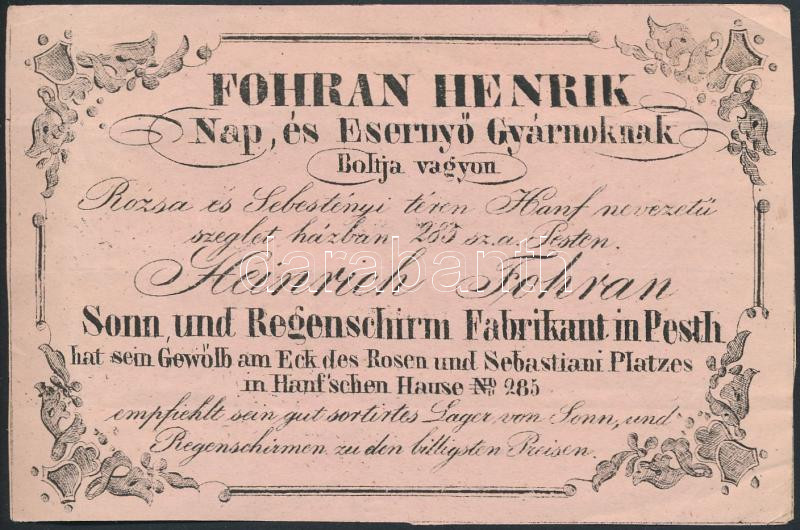 FOHRAN HENRIK
Nap, és Esernyő Gyárnoknak
Boltja vagyon
Rózsa és Sebestényi téren Hanf nevezetű
szeglet házban 285 sz.a. Pesten.
Heinrich Fohran
Sonn, und Regenschirm Fabrikant in Pesth
hat sein Gewölb am Eck des Rosen und Sebastiani Platzes
in Hanf'schen Hause No 285
empfiehlt sein gut sortirtes Lager von Sonn, und
Regenschirmen zu den billigsten Preisen.
darabanth